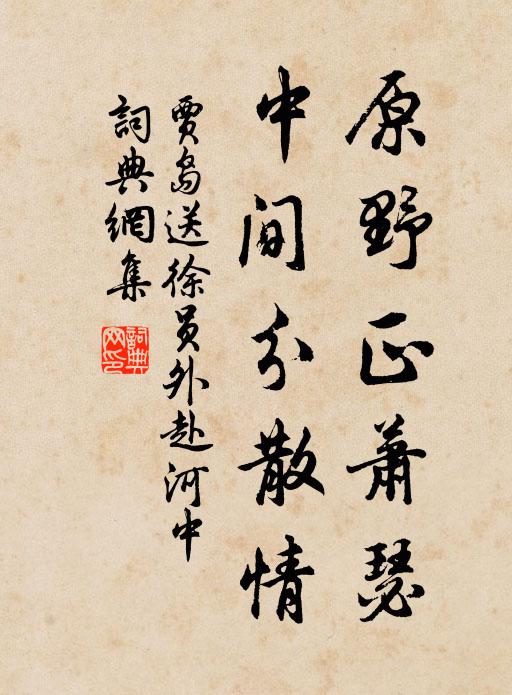 原野正蕭瑟
中间分散情
賈島送徐员外赴河中
詞典網集
詞典网印